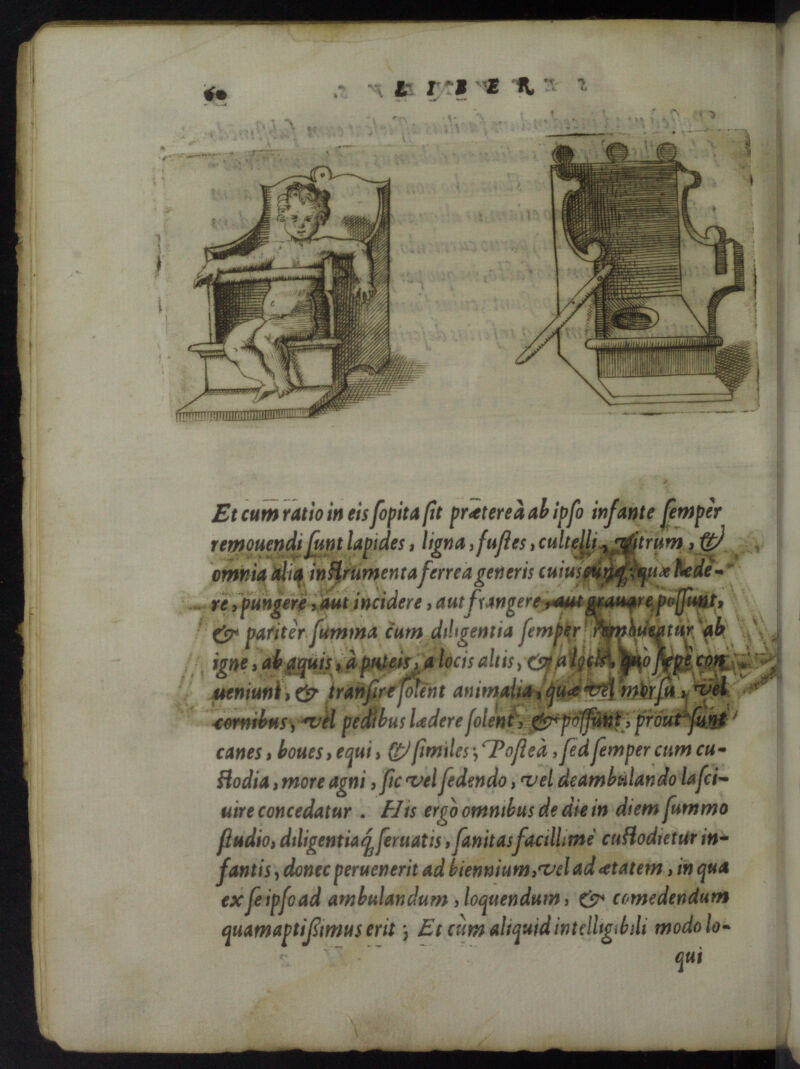 60 LIBER
Et cum ratio in eis sopita sit prætereà ab ipso infante sempèr
remouendi sunt lapides, ligna, fustes, cultelli, vitrum, &
omnia aliq instrumenta ferrea generis cuiusq; quæ lede-
re, pungere, aut incidere, aut frangere, aut grauare possunt,
& paritèr summa cum diligentia sempèr remoueatur ab
igne, ab aquis, à puteis, a locis altis, & a locis, quò sæpè con
ueniunt, & transire solent animalia, quæ vel morsu, vel
cornibus, vel pedibus lædere solent, & possunt, prout sunt
canes, boues, equi, & similes; Posteà, sed semper cum cu-
stodia, more agni, sic vel sedendo, vel deambulando lasci-
uire concedatur. His ergò omnibus de die in diem summo
studio, diligentiaq; seruatis, sanitas facillimè custodietur in-
fantis, donec peruenerit ad biennium, vel ad ætatem, in qua
ex se ipso ad ambulandum, loquendum, & comedendum
quam aptissimus erit; Et cùm aliquid intelligibili modo lo-
qui